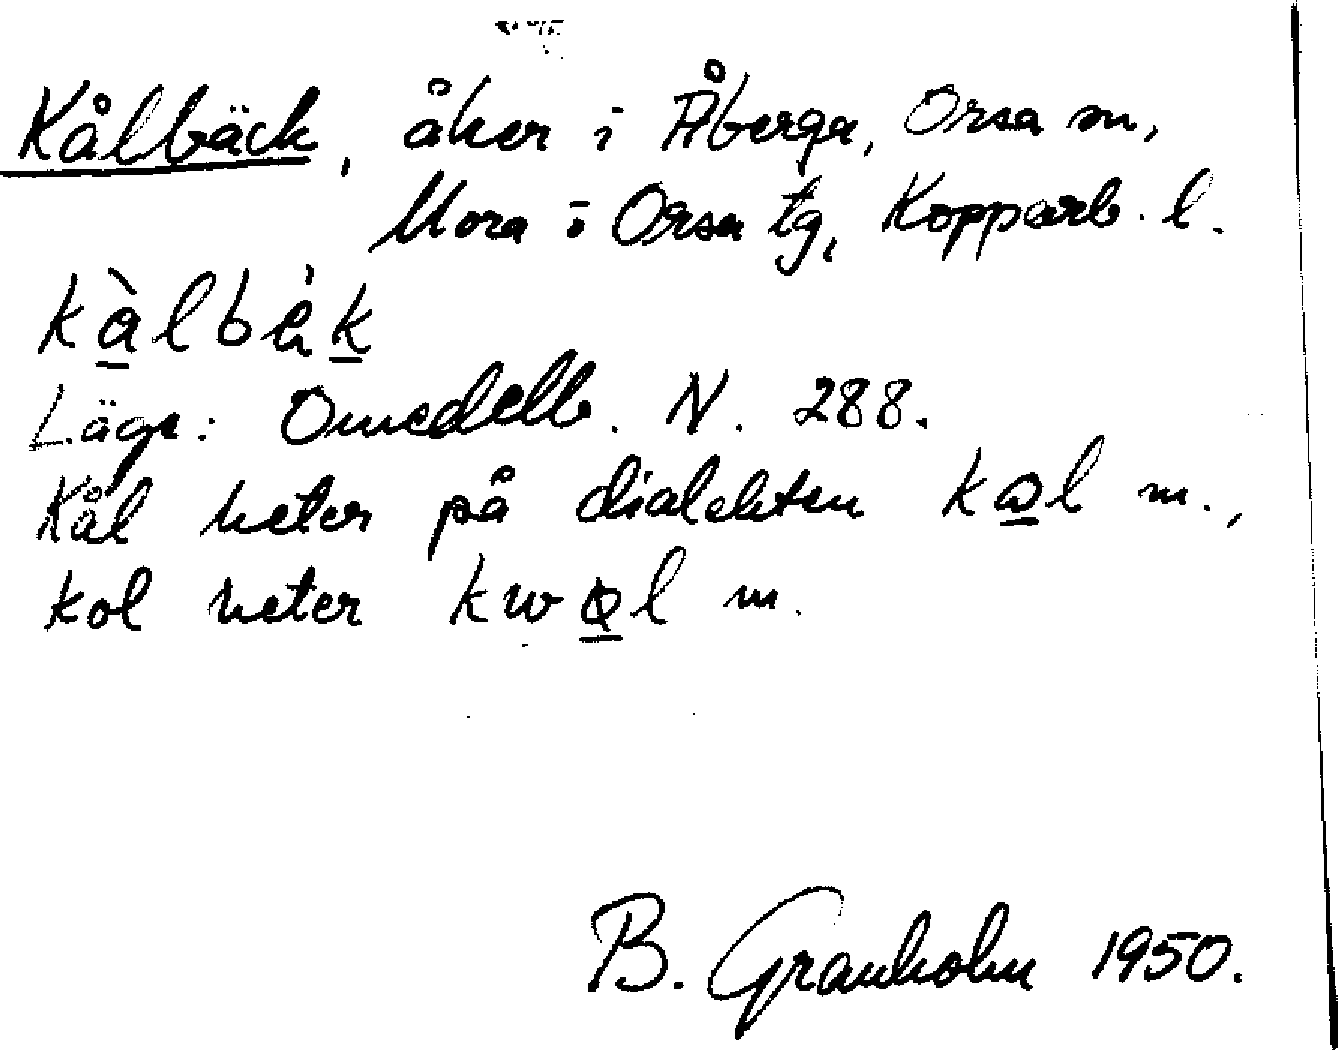 Kålbäck, åker i Åberga, Orsa sn,
Mora o Orsa tg, Kopparb. l.
kàlbàk
Läge: Omedelb. N. 288.
Kål heter på dialekten kal m.,
kol heter kwål m.
B. Granholm 1950.